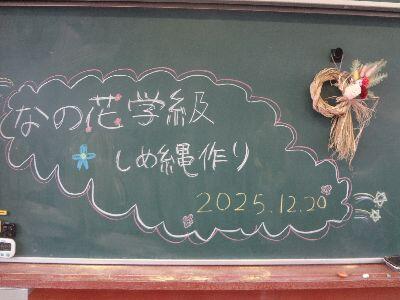 なの花学級
しめ縄作り
2025.12.20